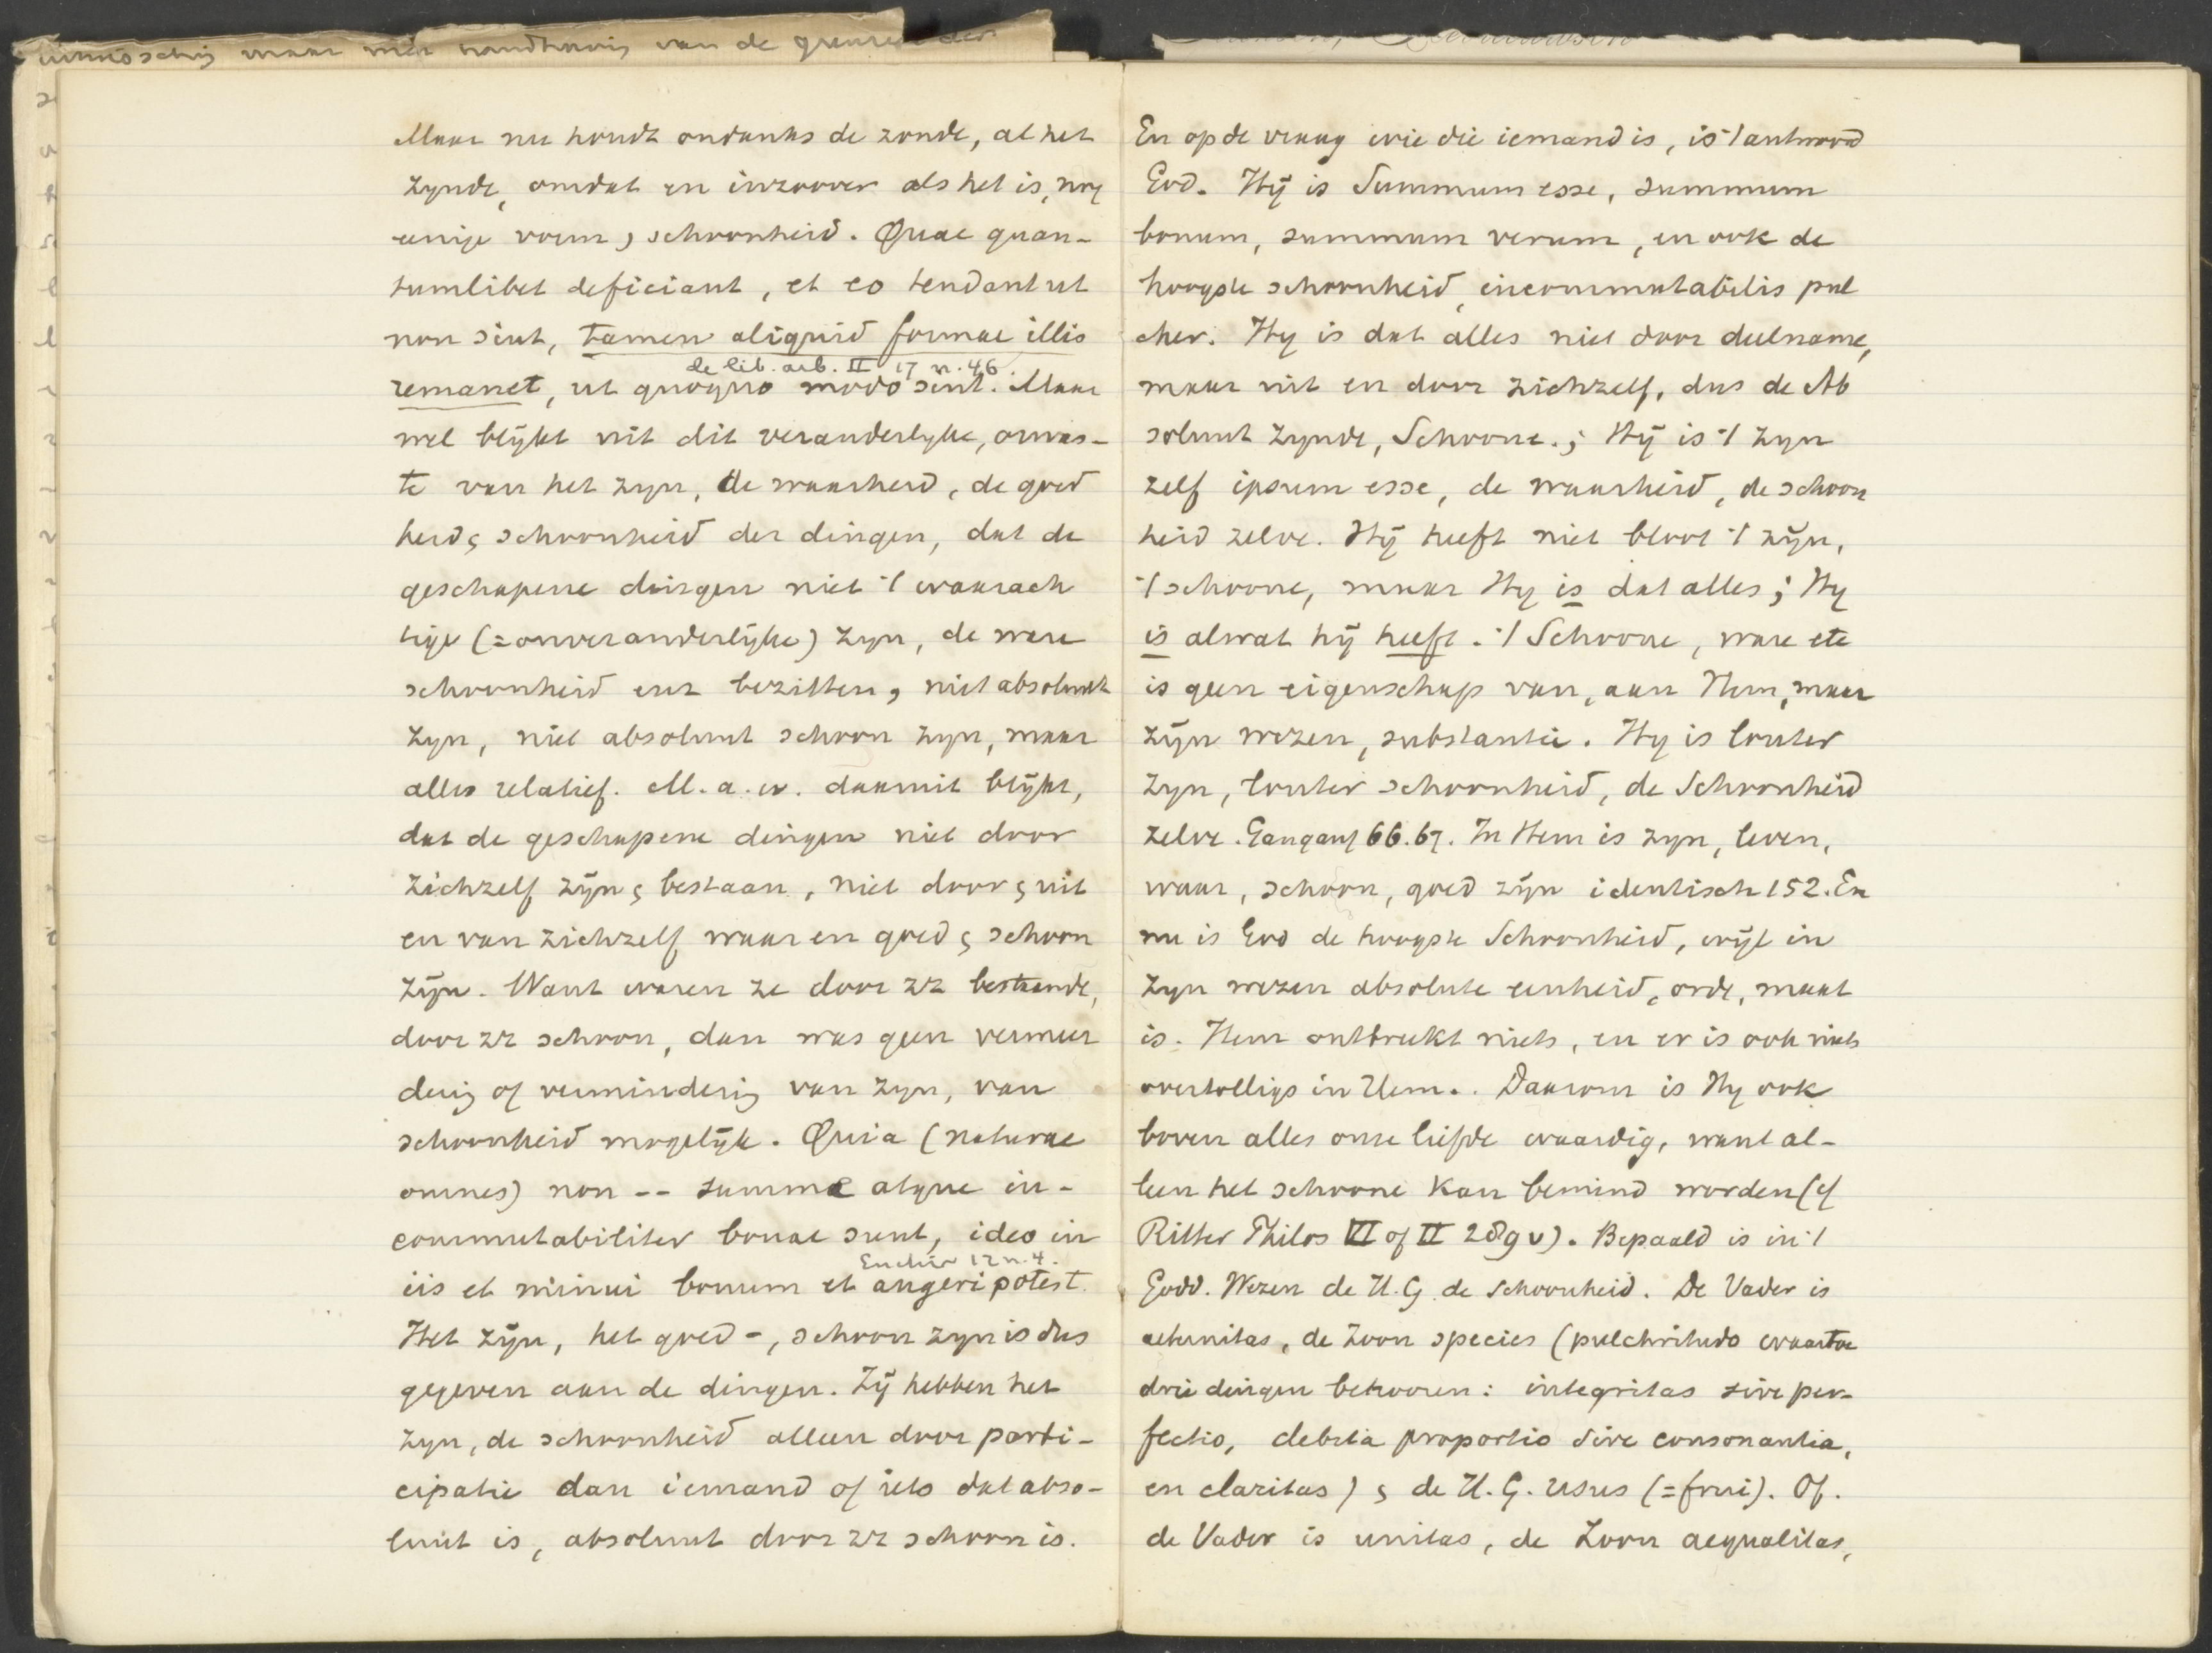 maar met handhaving van de grenzen der
Maar nu houdt ondanks de zonde, al het
zynde, omdat en inzoover als het is, nog
eenige vorm, schoonheid. Quae quan-
tumlibet deficiant, et eo tendant ut
non sint, tamen aliquid formae illis
de lib. arb. II 17 n. 46.
remanet, ut quoquo modo sint. Maar
wel blijkt uit dit veranderlyke, onvas-
te van het zyn, de waarheid, de goed
heid, schoonheid der dingen, dat de
geschapene dingen niet 't waarach
tige (=onveranderlijke) zyn, de ware
schoonheid enz bezitten, niet absoluut
zyn, niet absoluut schoon zyn, maar
alles relatief. M.a.w. daaruit blijkt,
dat de geschapene dingen niet door
zichzelf zijn & bestaan, niet door & uit
en van zichzelf waar en goed & schoon
zijn. Want waren ze door zz bestaande,
door zz schoon, dan was geen vermeer
dering of vermindering van zyn, van
schoonheid mogelijk. Quia (naturae
omnes) non -- summe atque in-
commutabiliter bonae sunt, ideo in
Enchir 12 n. 4.
iis et minui bonum et augeri potest.
Het zijn, het goed-, schoon zyn is dus
gegeven aan de dingen. Zij hebben het
zyn, de schoonheid alleen door parti-
cipatie dan iemand of iets dat abso-
luut is, absoluut door zz schoon is.
En op de vraag wie die iemand is, is 't antwoord
God. Hij is Summum esse, summum
bonum, summum verum, en ook de
hoogste schoonheid, incommutabilis pul
cher. Hy is dat alles niet door deelname,
maar uit en door zichzelf, dus de Ab
soluut zynde, Schoone.; Hij is 't zyn
zelf ipsum esse, de waarheid, de schoon
heid zelve. Hij heeft niet bloot 't zijn,
't schoone, maar Hy is dat alles; Hy
is alwat hij heeft. 't Schoone, ware etc
is geen eigenschap van, aan Hem, maar
zijn wezen, substantie. Hy is louter
zyn, louter schoonheid, de Schoonheid
zelve. Gangauf 66.67. In Hem is zyn, leven,
waar, schoon, goed zijn identisch 152. En
nu is God de hoogste Schoonheid, wijl in
zyn wezen absolute eenheid, orde, maat
is. Hem ontbreekt niets, en er is ook niets
overtolligs in Hem.. Daarom is Hy ook
boven alles onze liefde waardig, want al-
leen het schoone kan bemind worden (cf
Ritter Philos VI of II 289 v). Bepaald is in 't
Godd. Wezen de H.G. de schoonheid. De Vader is
aeternitas, de Zoon species (pulchritudo waartoe
drie dingen behooren: integritas sive per-
fectio, debita proportio sive consonantia,
en claritas) & de H.G. usus (=frui). Of.
de Vader is unitas, de Zoon aequalitas,